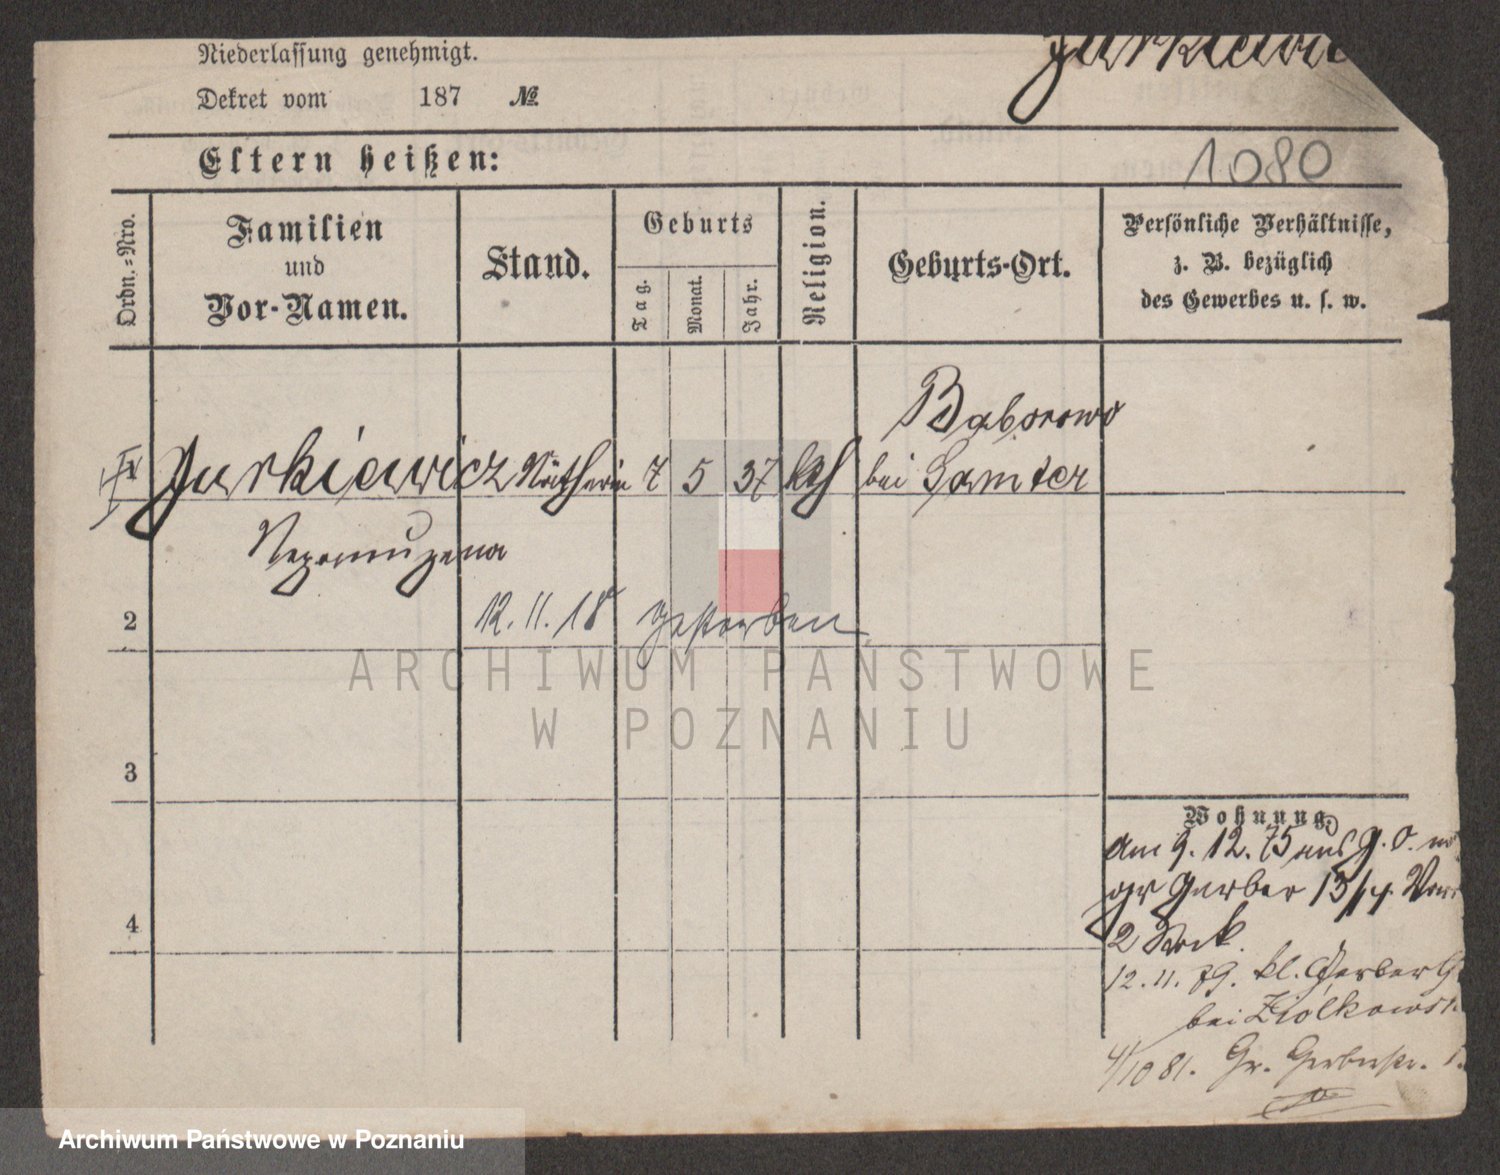 Niederlassung genehmigt.
Jurkiewic
Dekret vom 187 №
Eltern heißen:
1080
Ordn.-Nro.
Familien
und
Vor-Namen.
Stand.
Geburts
Tag.
Monat.
Jahr.
Religion.
Geburts-Ort.
Persönliche Verhältnisse,
z. B. bezüglich
des Gewerbes u. s. w.
Baborowo
1 Jurkiewicz Nätherin 7 5 37 kth bei Samter
Nepomuzena
12.11.18 gestorben
2
ARCHIWUM PAŃSTWOWE
W POZNANIU
3
Wohnung.
am 9. 12. 75 aus g. O.
gr Gerber 13/14
4
2 Stock.
12.11.79. kl. Gerber
bei Ziolkowsk
4/10 81. Gr. Gerberstr.
Archiwum Państwowe w Poznaniu